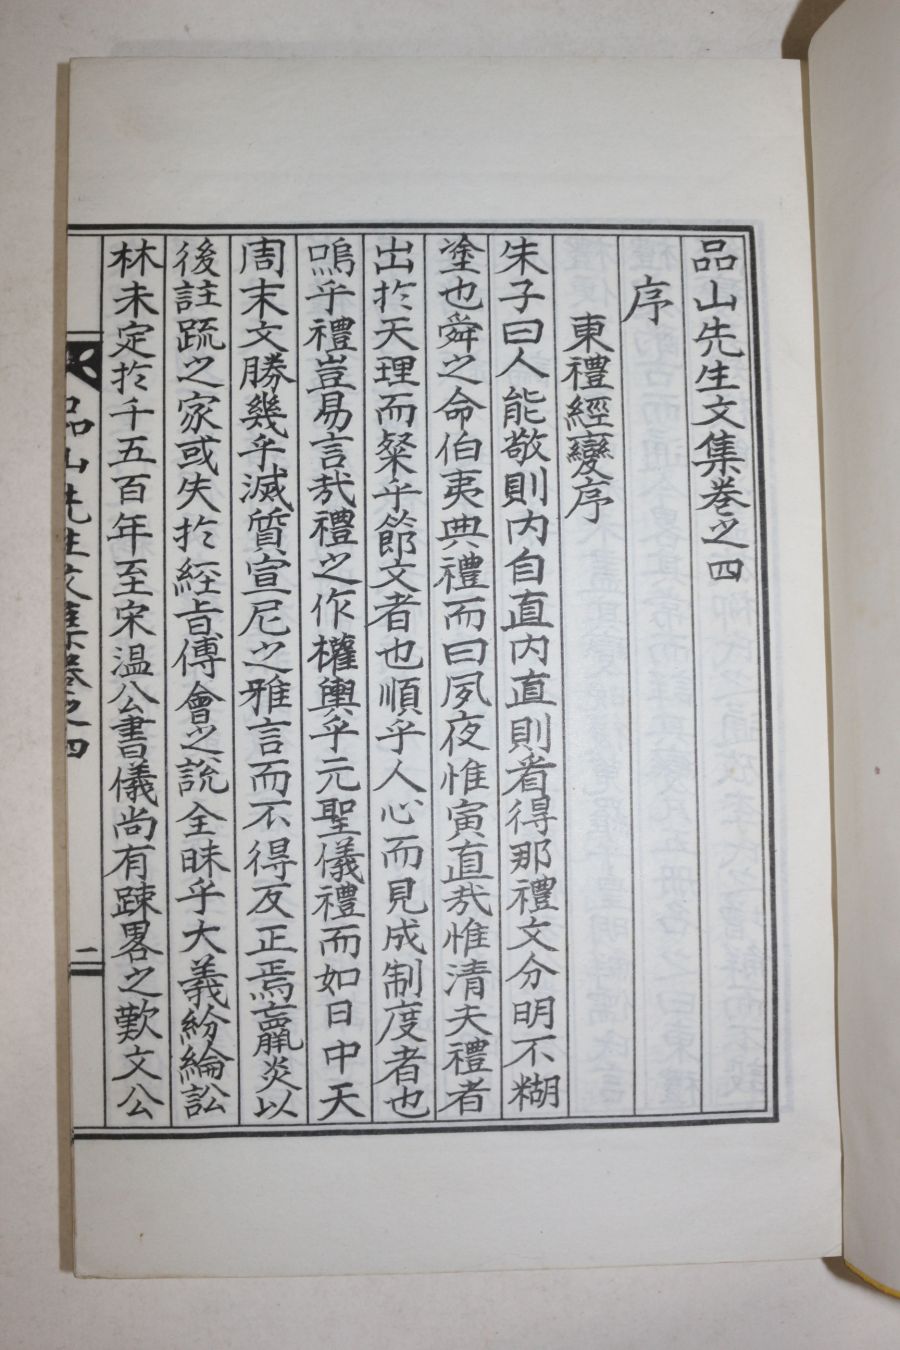 品山先生文集卷之四
序
東禮經變序
朱子曰人能敬則內自直內直則看得那禮文分明不糊
塗也舜之命伯夷典禮而曰夙夜惟寅直哉惟清夫禮者
出於天理而粲乎節文者也順乎人心而見成制度者也
嗚乎禮豈易言哉禮之作權輿乎元聖儀禮而如日中天
周末文勝幾乎滅質宣尼之雅言而不得反正焉嬴炎以
後註疏之家或失於經旨傅會之說全昧乎大義紛綸訟
林未定於千五百年至宋溫公書儀尚有踈畧之歎文公
品山先生文集卷之四 二